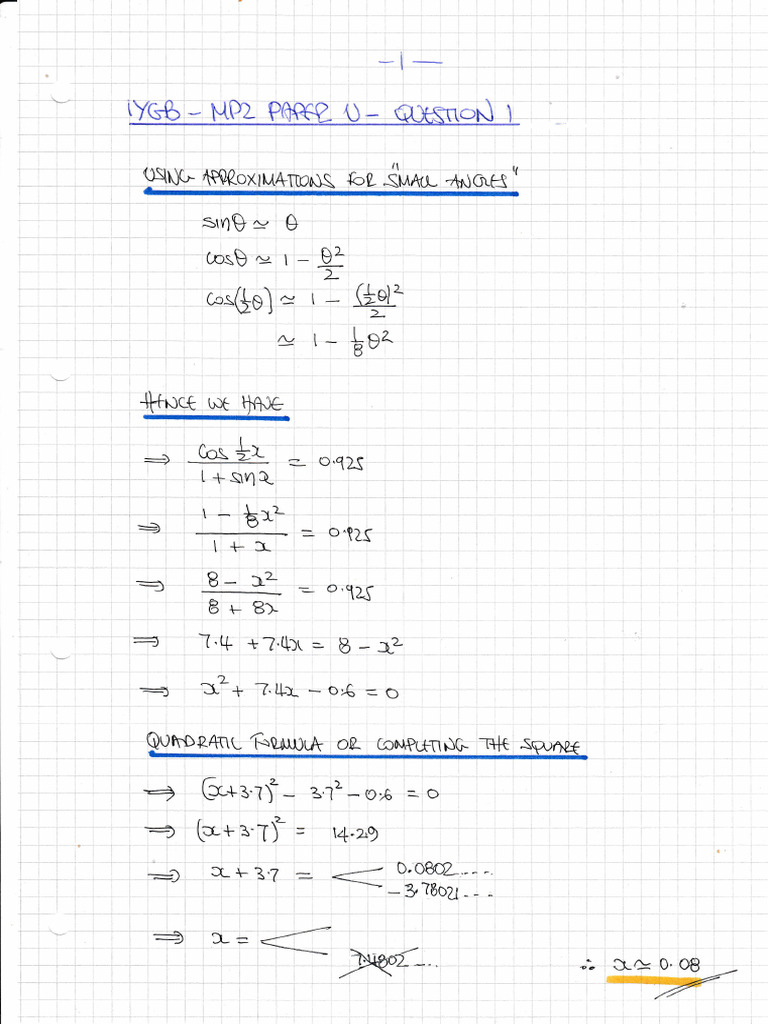 -1-
IYGB - MP2 PAPER U - QUESTION 1
USING APPROXIMATIONS FOR "SMALL ANGLES"
sinθ ≃ θ
cosθ ≃ 1 - θ²/2
cos(½θ) ≃ 1 - (½θ)²/2
≃ 1 - ⅛θ²
HENCE WE HAVE
⇒ cos ½x / (1 + sinx) = 0.925
⇒ (1 - ⅛x²) / (1 + x) = 0.925
⇒ (8 - x²) / (8 + 8x) = 0.925
⇒ 7.4 + 7.4x = 8 - x²
⇒ x² + 7.4x - 0.6 = 0
QUADRATIC FORMULA OR COMPLETING THE SQUARE
⇒ (x+3.7)² - 3.7² - 0.6 = 0
⇒ (x+3.7)² = 14.29
⇒ x + 3.7 = < 0.0802....
-3.78021...
⇒ x = <
7.4802...
∴ x ≃ 0.08